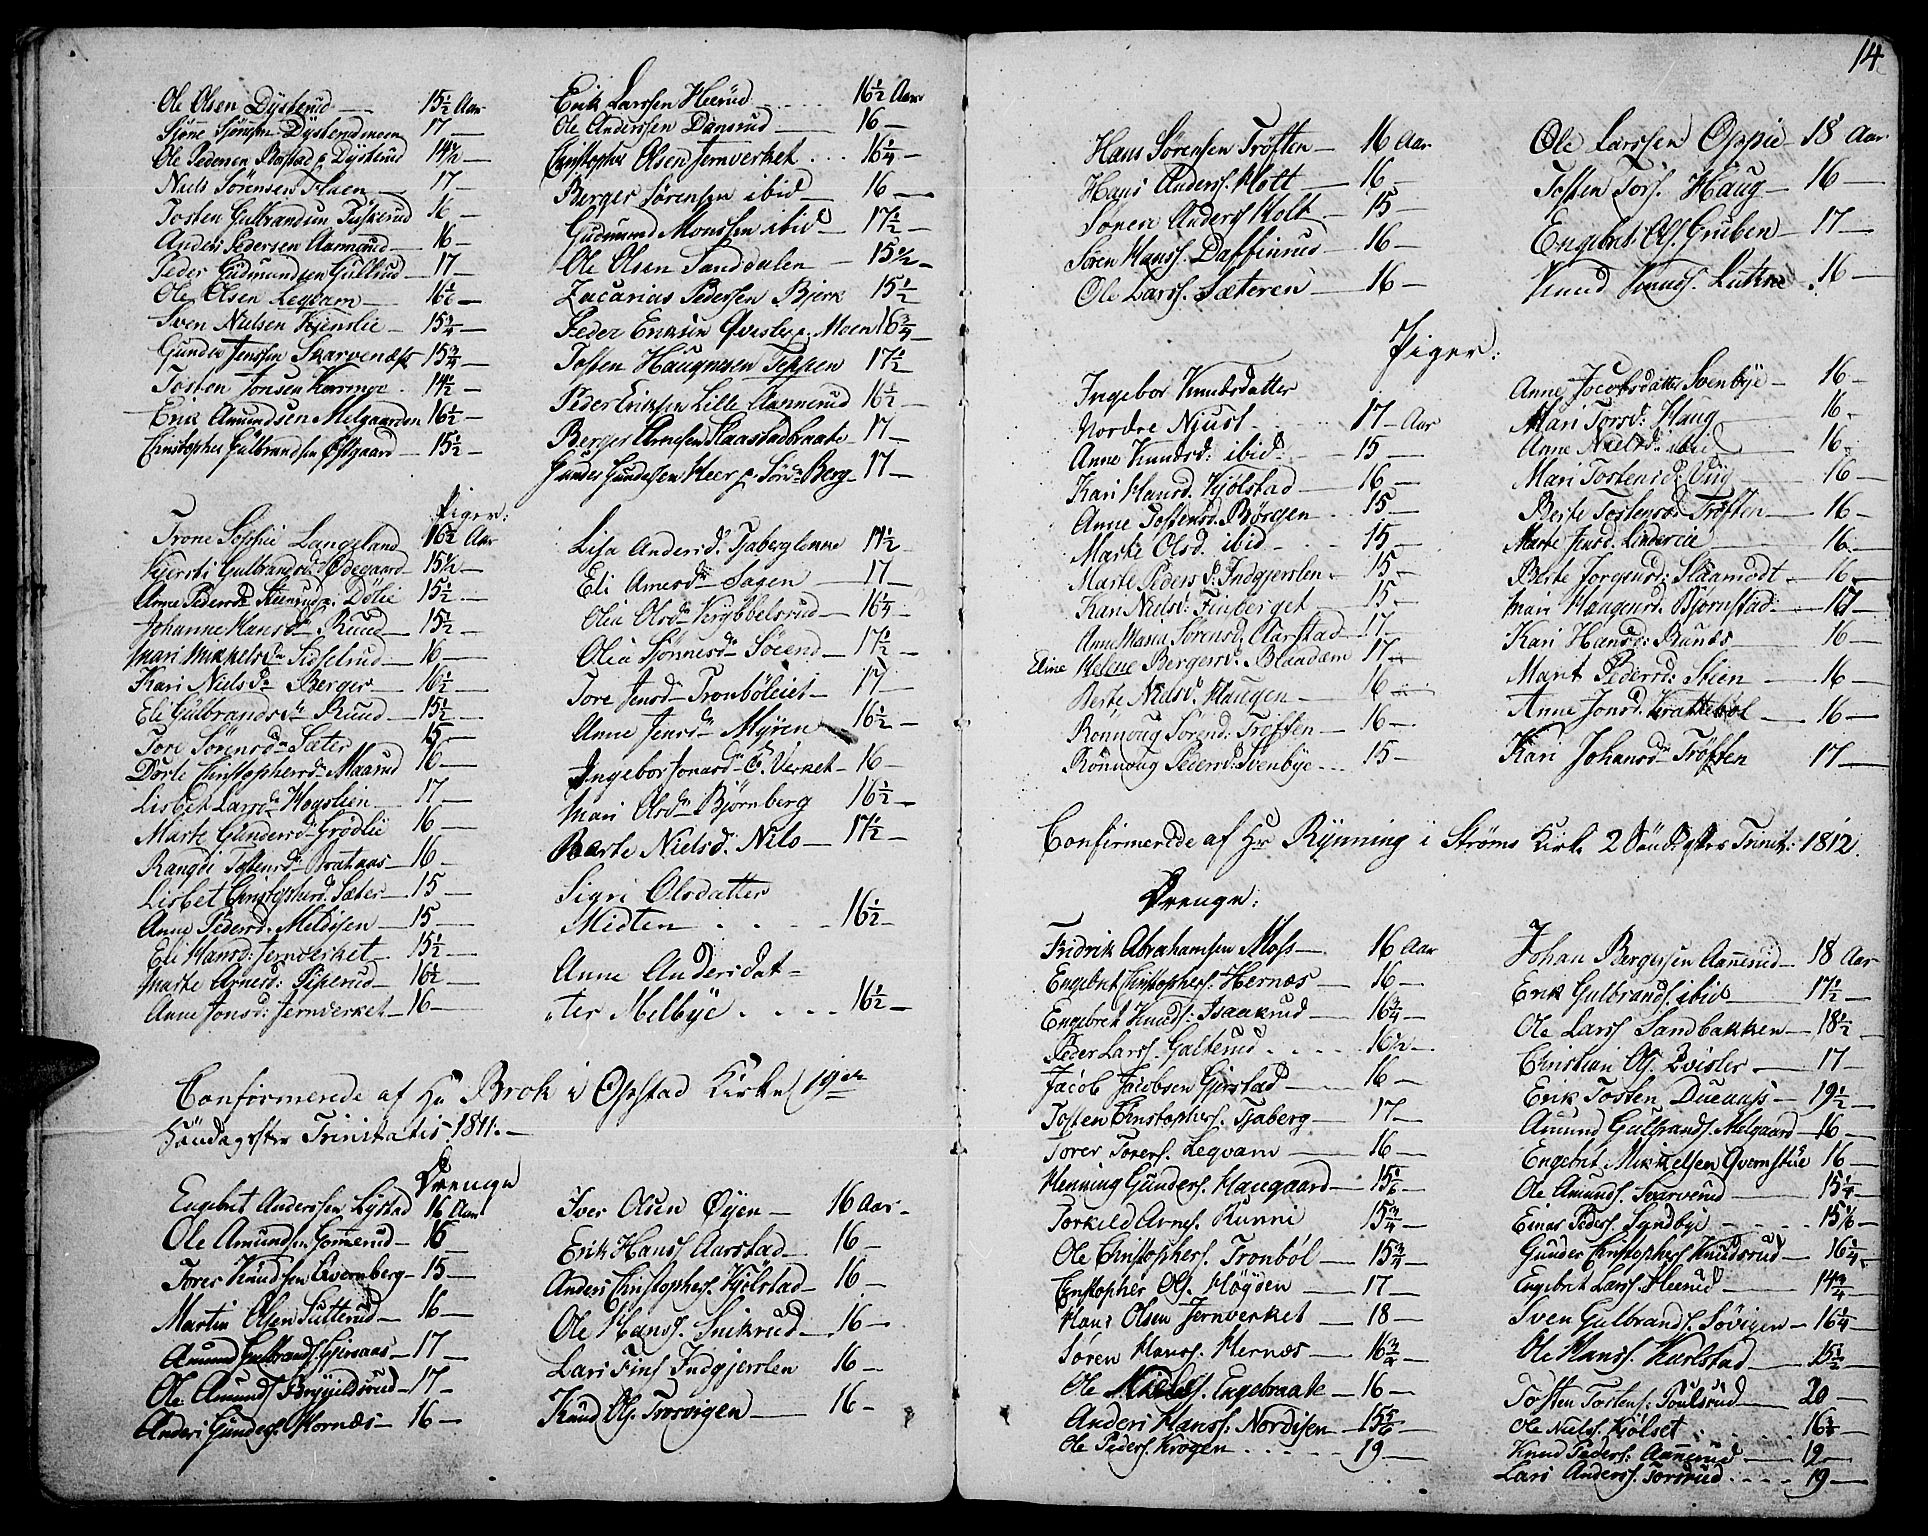 Ole Olsen Dysterud — 15½ Aar
Sjønne Sjønsen Dysterudmoen 17 —
Ole Pedersen Bostad p. Dysterud 14½ —
Niels Sørensen Floen — 17 —
Tosten Gulbrandsen Fiskerud 16 —
Anders Pedersen Aamoud — 16 —
Peder Gudmundsen Gullrud — 17 —
Ole Olsen Leqvam — 16½ —
Sven Nielsen Kjenslie — 15¾ —
Gunder Jenssen Skarvenæss 15¾ —
Tosten Jonsen Koringe . 14½ —
Erik Amundsen Melgaarden 16½ —
Christopher Gulbrandsen Østgaard — 15½ —
Erik Larssen Heerud 16½ Aar
Ole Anderssen Dansrud — 16 —
Christopher Olsen Jernverket . . . 16¼ —
Berger Sørensen ibid — 16 —
Gudmund Monssen ibid 17½ —
Ole Olsen Sanddalen — 15½ —
Zacarias Pedersen Bjerk 15½
Peder Ericksen Qvesley p. Moen 16¾
Tosten Haugersen Teppen 17½
Peder Eriksen Lille Aannerud 16½
Berger Arnesen Haastadbraate 17 —
Gunder Gundersen Heer p. Sönd Berg — 17 —
Piger:
Trone Sophie Langeland 16½ Aar
Kjersti Gulbrandsd. Ødegaard — 15½ —
Anne Pedersd. Steensrud p. Dølie 15½ —
Johanne Hansd. Ruud — 15½ —
Mari Mikkelsd. Sidselrud — 16 —
Kari Nielsd. Berger — 16½ —
Eli Gulbrandsd. Ruud — 15½ —
Tore Sørensd. Sæter 15 —
Dorte Christophersd. Maarud 16 —
Lisbet Larsd. Hoyslien — 17 —
Marte Gundersd. Grødlie 16 —
Rangdi Tostensd. Brataas — 16 —
Lisbet Christophersd. Sæter — 15 —
Anne Pedersd. Meldisen — 15 —
Eli Hansd: Jernverket — 15½ —
Marte Arnesd: Piperud — 16½ —
Anne Jonsd: Jernverket — 16 —
Lisa Andersd. Tjaberglenne 17½ —
Eli Arnesd. Sagen — 17 —
Olia Olsd. Vegbbelsrud — 16¼ —
Olia Sjønnesd. Søiend — 17½ —
Tore Jensd. Tronböleiet — 17 —
Anne Jensd. Myren 16½ —
Ingebor Jonasd. E. Verket — 16 —
Mari Olsd. Bjørnberg 16½ —
Marte Nielsd. Nilo — 17½ —
Sigri Olsdatter
Midten . . . — 16½ —
Anne Andersdat=
ter Melbye . . . . 16½ —
Confirmerede af Hr Brok i Opstad Kirke 19de
Söndag efter Trinitatis 1811. —
Drenge
Engebret Anderssen Lystad 16 Aar
Ole Amundsen Gommerud — 16
Torer Knudsen Qvernberg — 15 —
Martin Olsen Sutterud — 16 —
Amund Gulbrands. Gjersaas — 17 —
Ole Amunds. Brygildsrud — 17 —
Anders Gunders. Hornæs — 16 —
Iver Olsen Øyen — 16 Aar —
Erik Hanss. Aarstad — 16 —
Anders Christophers. Kjölstad — 16 —
Ole Hanss. Snikrud — 16 —
Lars Fins Indgjerslen 16 —
Knud Ols. Trosvigen — 16 —
14
Hans Sørensen Trøften — 16 Aar
Hans Anderss. Holt — 16 —
Søren Anderss Holt — 15 —
Søren Hanss. Daffinrud — 16 —
Ole Larss. Sæteren — 16 —
Ole Larssen Oppie — 18 Aar
Tosten Tors. Haug — 16 —
Engebret Ols. Gruben — 17 —
Knud Knuds. Lutkne . 16 —
Piger:
Ingebor Knudsdatter
Nordre Njust . . . 17 — Aar
Anne Knudsd: ibid — 15 —
Kari Hansd. Kjölstad — 16 —
Anne Tostensd. Børgen . . 15 —
Marte Olsd. ibid . . . 15 —
Marte Pedersd. Indgjerslen — 15 —
Kari Nielsd: Finberget — 15 —
Anne Maria Sørensd. Aarstad — 17 —
Eline Helene Bergersd. Blaadam 17 —
Berte Nielsd. Haugen — 16 —
Rønnoug Sørend: Trøften — 16 —
Rønnoug Pedersd. Svenbye . . . 15 —
Anne Jacobsdatter Svenbye — 16 —
Mari Torsd. Haug — 16 —
Anne Nielsd. ibid 16 —
Mari Tostensd. Viig — 16
Berte Tostensd. Trøften — 16 —
Marte Jensd. Lindereie — 16 —
Berte Jorgensd: Slaamodt — 16 —
Mari Haugensd. Bjørnstad — 17 —
Kari Hansd: Runæs — 16 —
Marit Pedersd: Stien — 16 —
Anne Jonsd. Krattebøl — 16 —
Kari Johansd. Trøften 17 —
Confirmerede af Hr Rynning i Strøms Kirke 2 Söndag efter Trinit: 1812.
Drenge:
Fridrik Abrahamsen Moss — 16 Aar
Engebret Christophers. Hernæs — 16 —
Engebret Knuds: Isaakrud — 16¾ —
Peder Larss. Galterud . . . 16½ —
Jacob Jacobsen Gjerstad — 16 —
Tosten Christophers. Tjaberg — 17 —
Torer Torers. Leqvam — 16 —
Henning Gunders. Haugaard — 15⅙ —
Torkild Arnes. Kunni 15¾ —
Ole Christophers. Tronböl — 15¾ —
Christopher Ols. Høgden — 17 —
Hans Olsen Jernverket — 18 —
Søren Hanss. Hernæs — 16¾ —
Ole Nielss. Engebraate — 16 —
Anders Hanss: Nordisen — 15⅚ —
Ole Peders. Krogen . . . . 19 —
Johan Bergersen Aannerud — 18 Aar
Erik Gulbrands. ibid — 17½ —
Ole Larss. Sandbakken — 18½ —
Christian Ols. Qvisler — 17 —
Erik Tosten Dueaass — 19½ —
Amund Gulbrands. Melgaard — 16 —
Engebret Mikkelsen Qvernstue 16 —
Ole Amunds. Svarverud — 15¼ —
Einar Peders. Syndbye — . . . 15⅙ —
Gunder Christophers Knudsrud — 16¼ —
Engebret Larss. Heerud — 14¾ —
Sven Gulbrands. Søvigen — 16¼ —
Ole Hanss. Harlstad — 15½ —
Tosten Tostens. Poulsrud — 20 —
Ole Niels. Kjølset . . . . . 16¾ —
Knud Peders: Aannerud — 19 —
Lars Anderss. Torsrud . . . 19 —